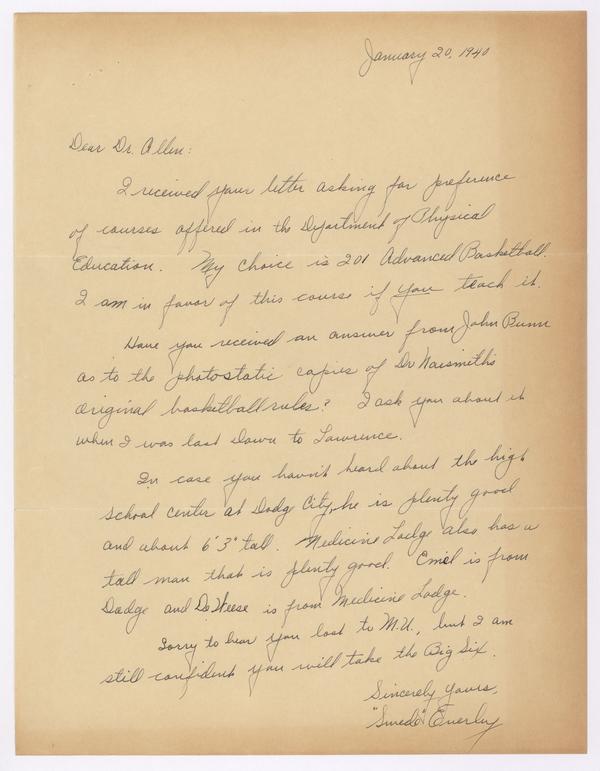 January 20, 1940
Dear Dr. Allen:
I received your letter asking for preference
of courses offered in the Department of Physical
Education. My choice is 201 Advanced Basketball.
I am in favor of this course if you teach it.
Have you received an answer from John Bunn
as to the photostatic copies of Dr Naismith's
original basketball rules? I ask you about it
when I was last down to Lawrence.
In case you havn't heard about the high
school center at Dodge City, he is plenty good
and about 6' 3" tall. Medicine Lodge also has a
tall man that is plenty good. Emel is from
Dodge and DeWeese is from Medicine Lodge.
Sorry to hear you lost to M.U., but I am
still confident you will take the Big Six.
Sincerely Yours,
"Swede" Everly